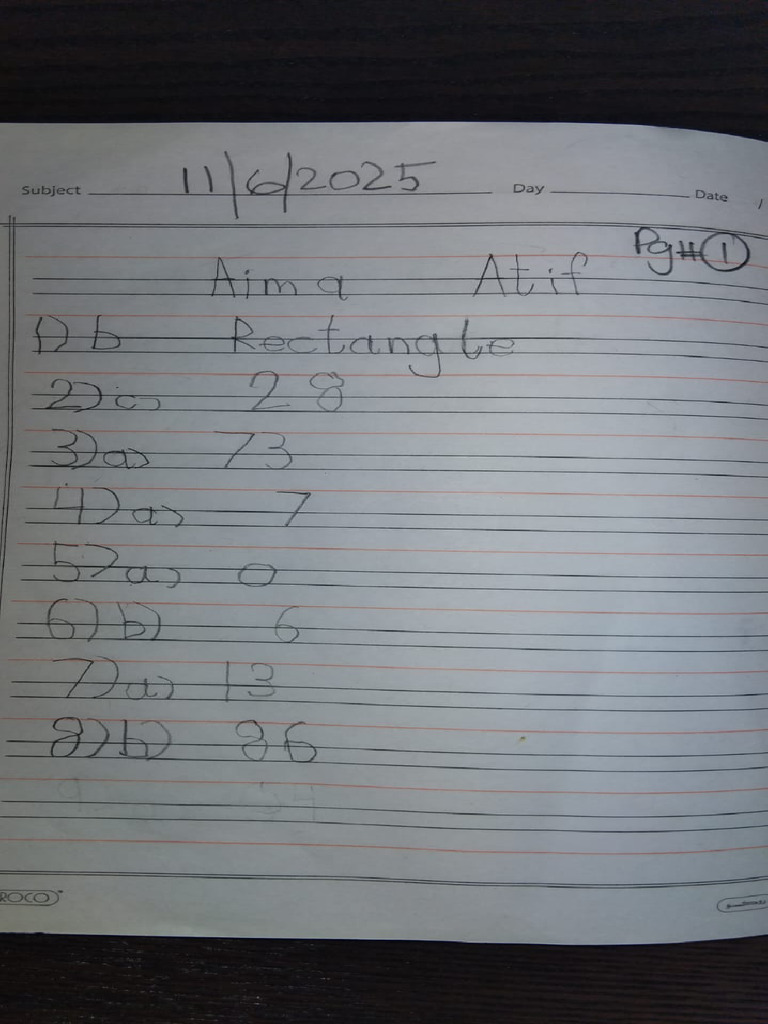 Subject 11/6/2025 Day Date /
Pg#1
Aima Atif
1) b Rectangle
2) c) 28
3) a) 73
4) a) 7
5) a) 0
6) b) 6
7) a) 13
8) b) 86
ROCO